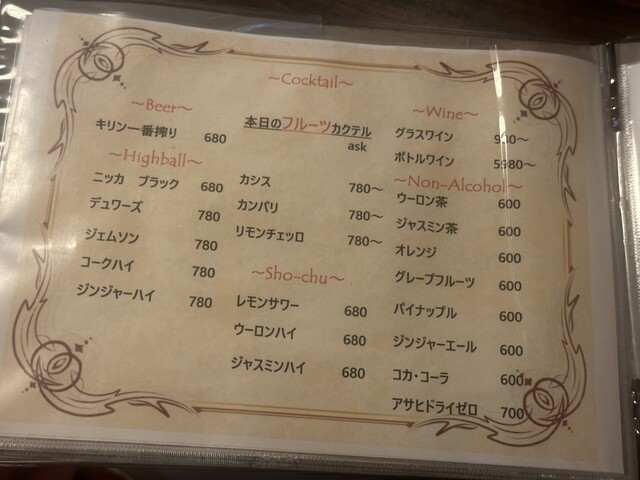 ~Cocktail~
~Beer~
キリン一番搾り 680
~Highball~
ニッカ ブラック 680
デュワーズ 780
ジェムソン 780
コークハイ 780
ジンジャーハイ 780
本日のフルーツカクテル
ask
カシス 780～
カンパリ 780～
リモンチェッロ 780～
~Sho-chu~
レモンサワー 680
ウーロンハイ 680
ジャスミンハイ 680
~Wine~
グラスワイン
ボトルワイン 5980～
~Non-Alcohol~
ウーロン茶 600
ジャスミン茶 600
オレンジ 600
グレープフルーツ 600
パイナップル 600
ジンジャーエール 600
コカ・コーラ 600
アサヒドライゼロ 700